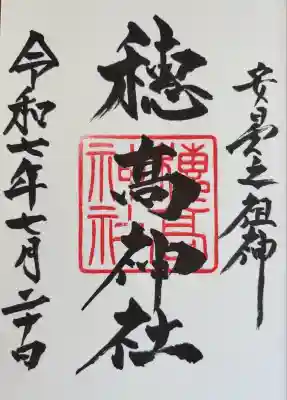 安曇之祖神
穂髙神社
令和七年七月二十日
穗高
神社